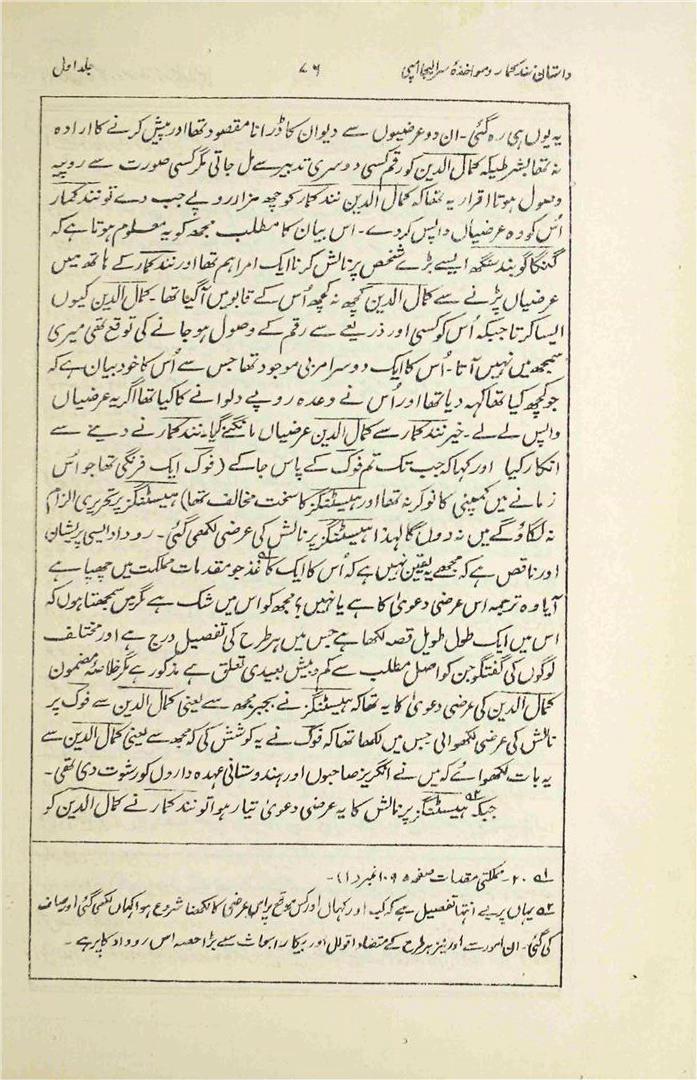 داستان نند کمار و مواخذۂ سر الیجا امپی ۷۶ جلد اول
یہ یوں ہی رہ گئی ۔ ان دو عرضیوں سے دیوان کا ڈرانا مقصود تھا اور پیش کرنے کا ارادہ
نہ تھا بشرطیکہ کمال الدین کو رقم کسی دوسری تدبیر سے مل جاتی مگر کسی صورت سے روپیہ
وصول ہوتا اقرار یہ تھا کہ کمال الدین نند کمار کو چھ ہزار روپے جب دے تو نند کمار
اُس کو وہ عرضیاں واپس کر دے ۔ اس بیان کا مطلب مجھ کو یہ معلوم ہوتا ہے کہ
گنگا گوبند سنگھ ایسے بڑے شخص پر نالش کرنا ایک امر اہم تھا اور نند کمار کے ہاتھ میں
عرضیاں پڑنے سے کمال الدین کچھ نہ کچھ اُس کے قابو میں آگیا تھا ۔ کمال الدین کیوں
ایسا کرتا جبکہ اُس کو کسی اور ذریعے سے رقم کے وصول ہو جانے کی توقع تھی میری
سمجھ میں نہیں آتا ۔ اُس کا ایک دوسرا مربی موجود تھا جس سے اُس کا خود بیان ہے کہ
جو کچھ کیا تھا کہہ دیا تھا اور اُس نے وعدہ روپے دلوانے کا کیا تھا اگر یہ عرضیاں
واپس لے لے ۔ خیر نند کمار سے کمال الدین عرضیاں مانگنے گیا ۔ نند کمار نے دینے سے
انکار کیا اور کہا کہ جب تک تم فوک کے پاس جا کے (فوک ایک فرنگی تھا جو اُس
زمانے میں کمپنی کا نوکر نہ تھا اور ہیسٹنگز کا سخت مخالف تھا) ہیسٹنگز پر تحریری الزام
نہ لگاؤ گے میں نہ دوں گا لہذا ہیسٹنگز پر نالش کی عرضی لکھی گئی ۔ روداد ایسی پریشان
اور ناقص ہے کہ مجھے یہ یقین نہیں ہے کہ اُس کا ایک کاغذ جو مقدمات مملکت میں چھپا ہے
آیا وہ ترجمہ اس عرضی دعویٰ کا ہے یا نہیں؟ مجھ کو اس میں شک ہے مگر میں سمجھتا ہوں کہ
اس میں ایک طول طویل قصہ لکھا ہے جس میں ہر طرح کی تفصیل درج ہے اور مختلف
لوگوں کی گفتگو جن کو اصل مطلب سے کم و بیش بعیدی تعلق ہے مذکور ہے مگر خلاصۂ مضمون
کمال الدین کی عرضی دعویٰ کا یہ تھا کہ ہیسٹنگز نے بجبر مجھ سے یعنی کمال الدین سے فوک پر
نالش کی عرضی لکھوائی جس میں لکھا تھا کہ فوک نے یہ کوشش کی کہ مجھ سے یعنی کمال الدین سے
یہ بات لکھوائے کہ میں نے انگریز صاحبوں اور ہندوستانی عہدہ داروں کو رشوت دی تھی ۔
جبکہ ۵۲ ہیسٹنگز پر نالش کا یہ عرضی دعویٰ تیار ہوا تو نند کمار نے کمال الدین کو
۵۱ ۲۰ ۔ مملکتی مقدمات صفحہ ۱۰۹۵ نمبر (۱) ۔
۵۲ یہاں پر بے انتہا تفصیل ہے کہ کب اور کہاں اور کس موقع پر اس عرضی کا لکھنا شروع ہوا کہاں لکھی گئی اور صاف
کی گئی ۔ ان امور سے اور نیز ہر طرح کے متضاد اقوال اور بیکار ابحاث سے بڑا حصہ اس روداد کا پر ہے ۔